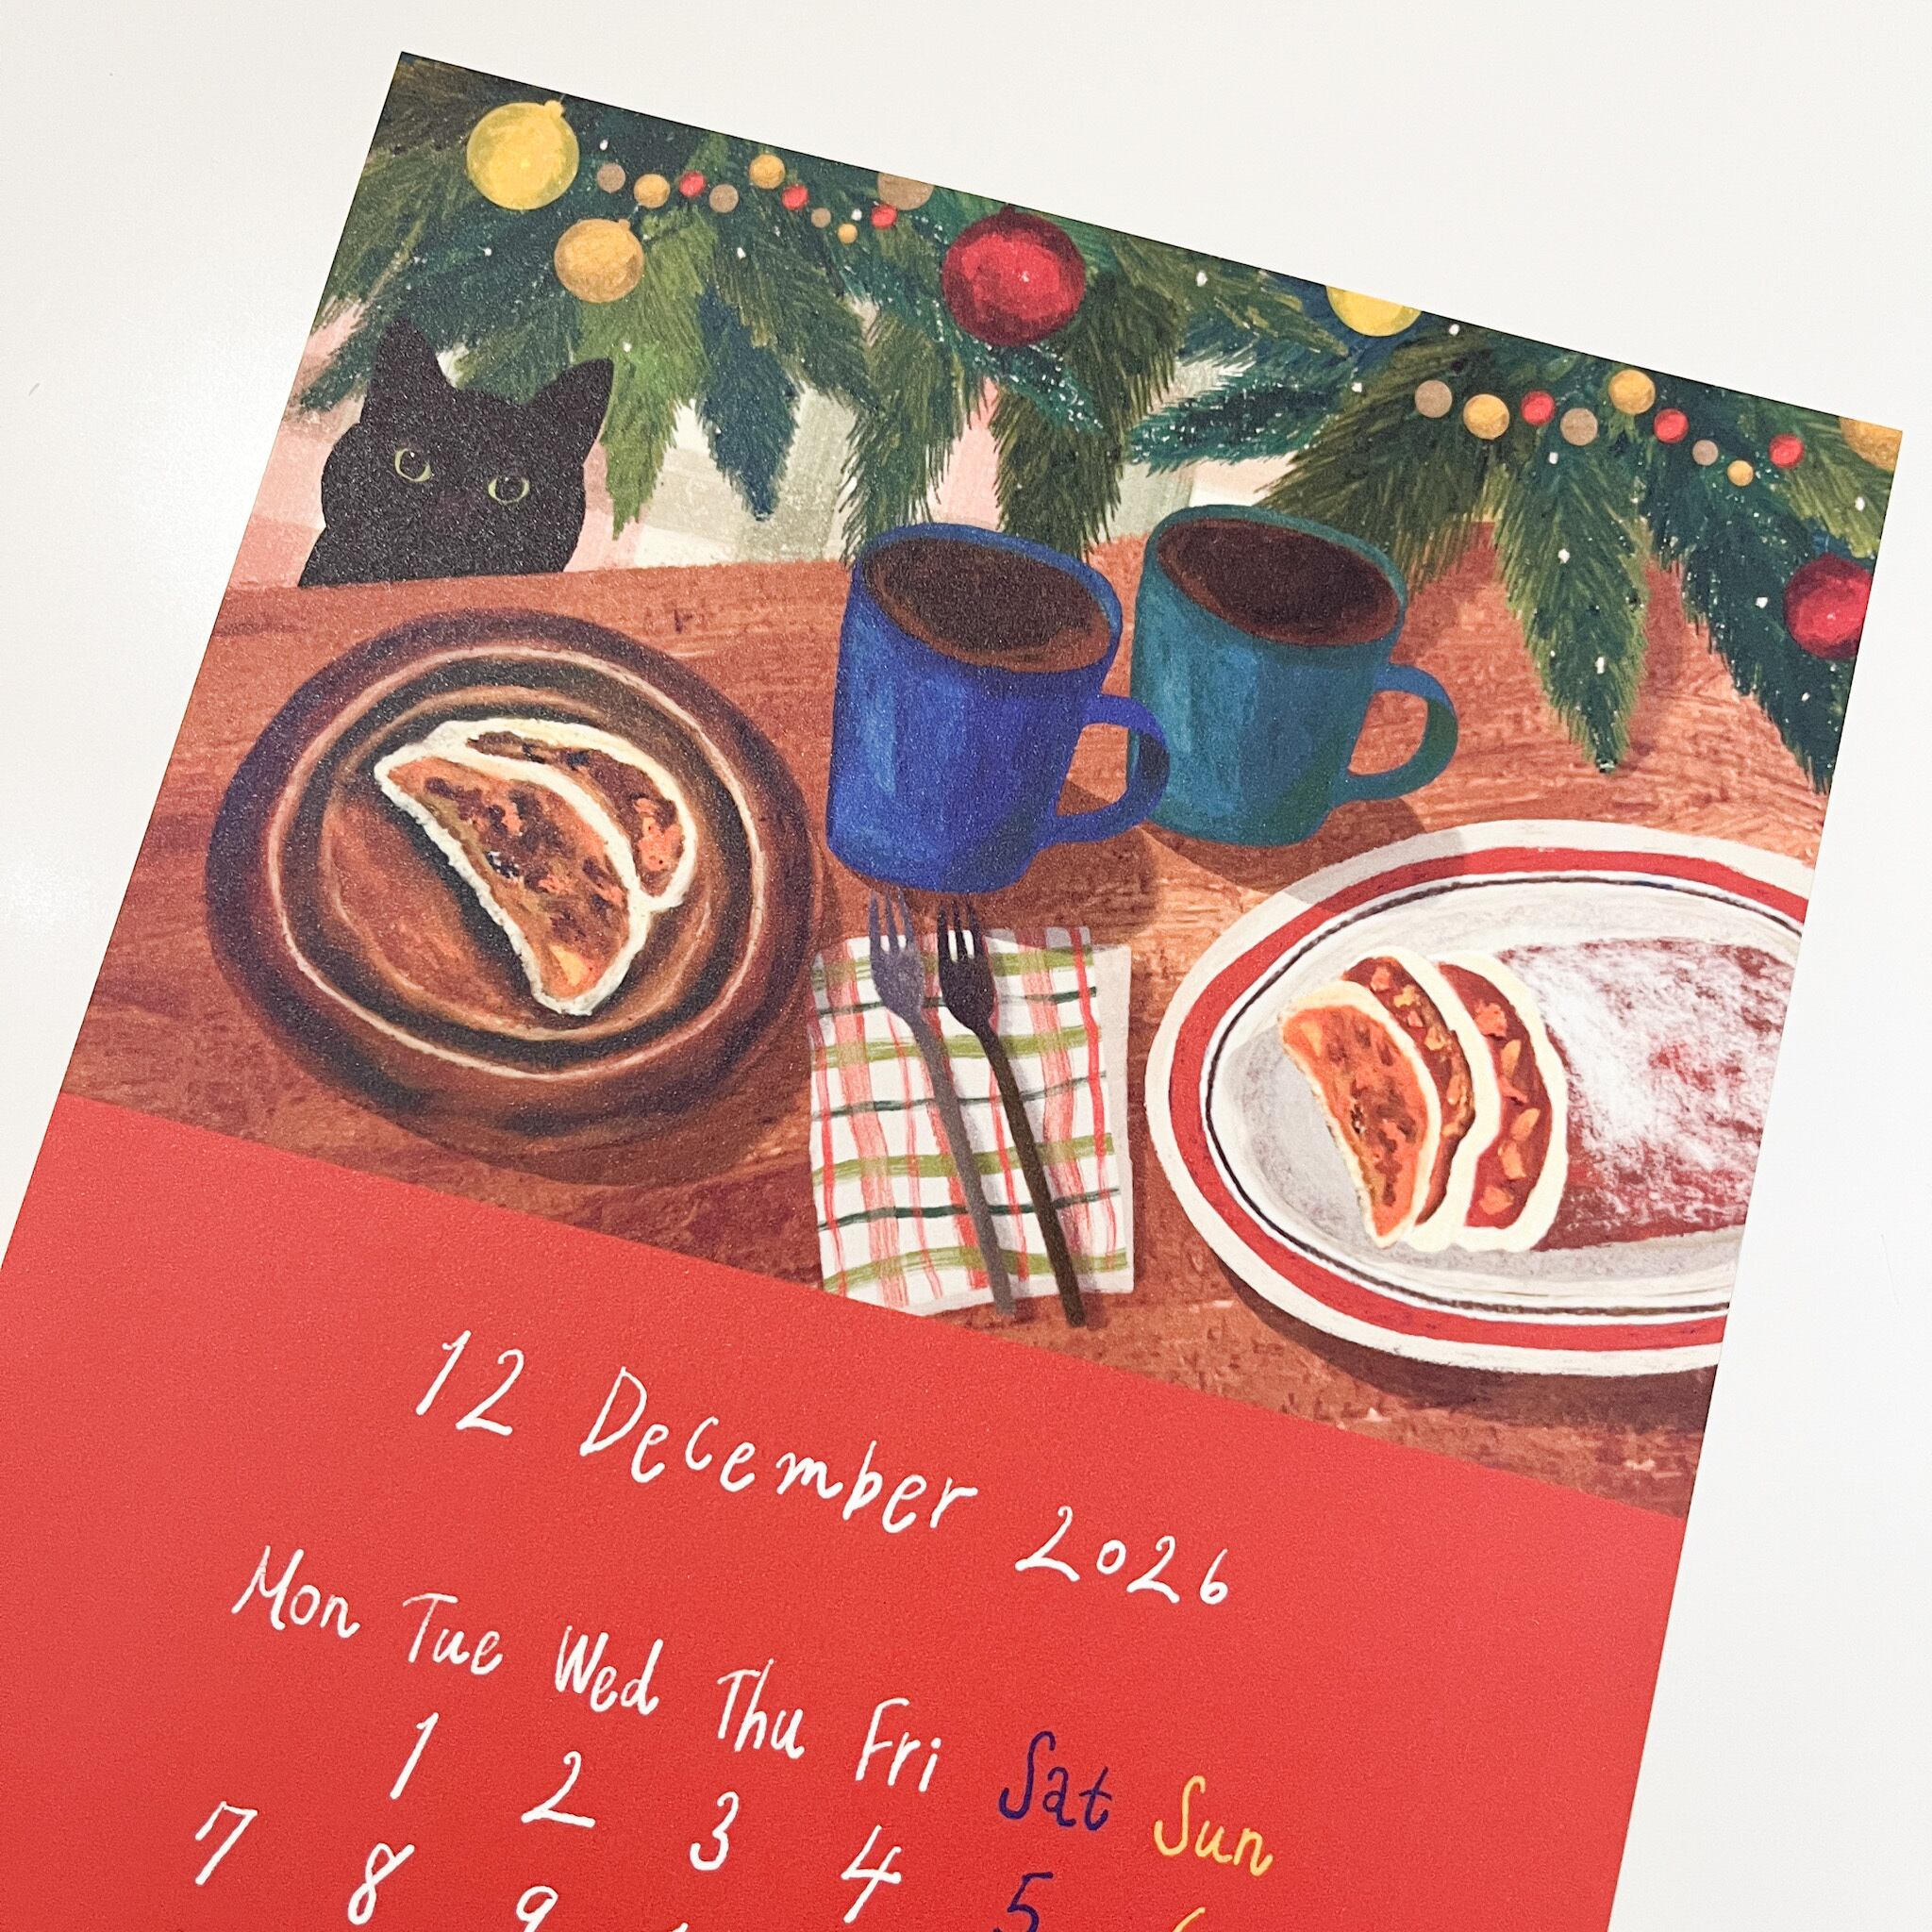 12 December 2026
Mon Tue Wed Thu Fri Sat Sun
1 2 3 4 5
7 8 9